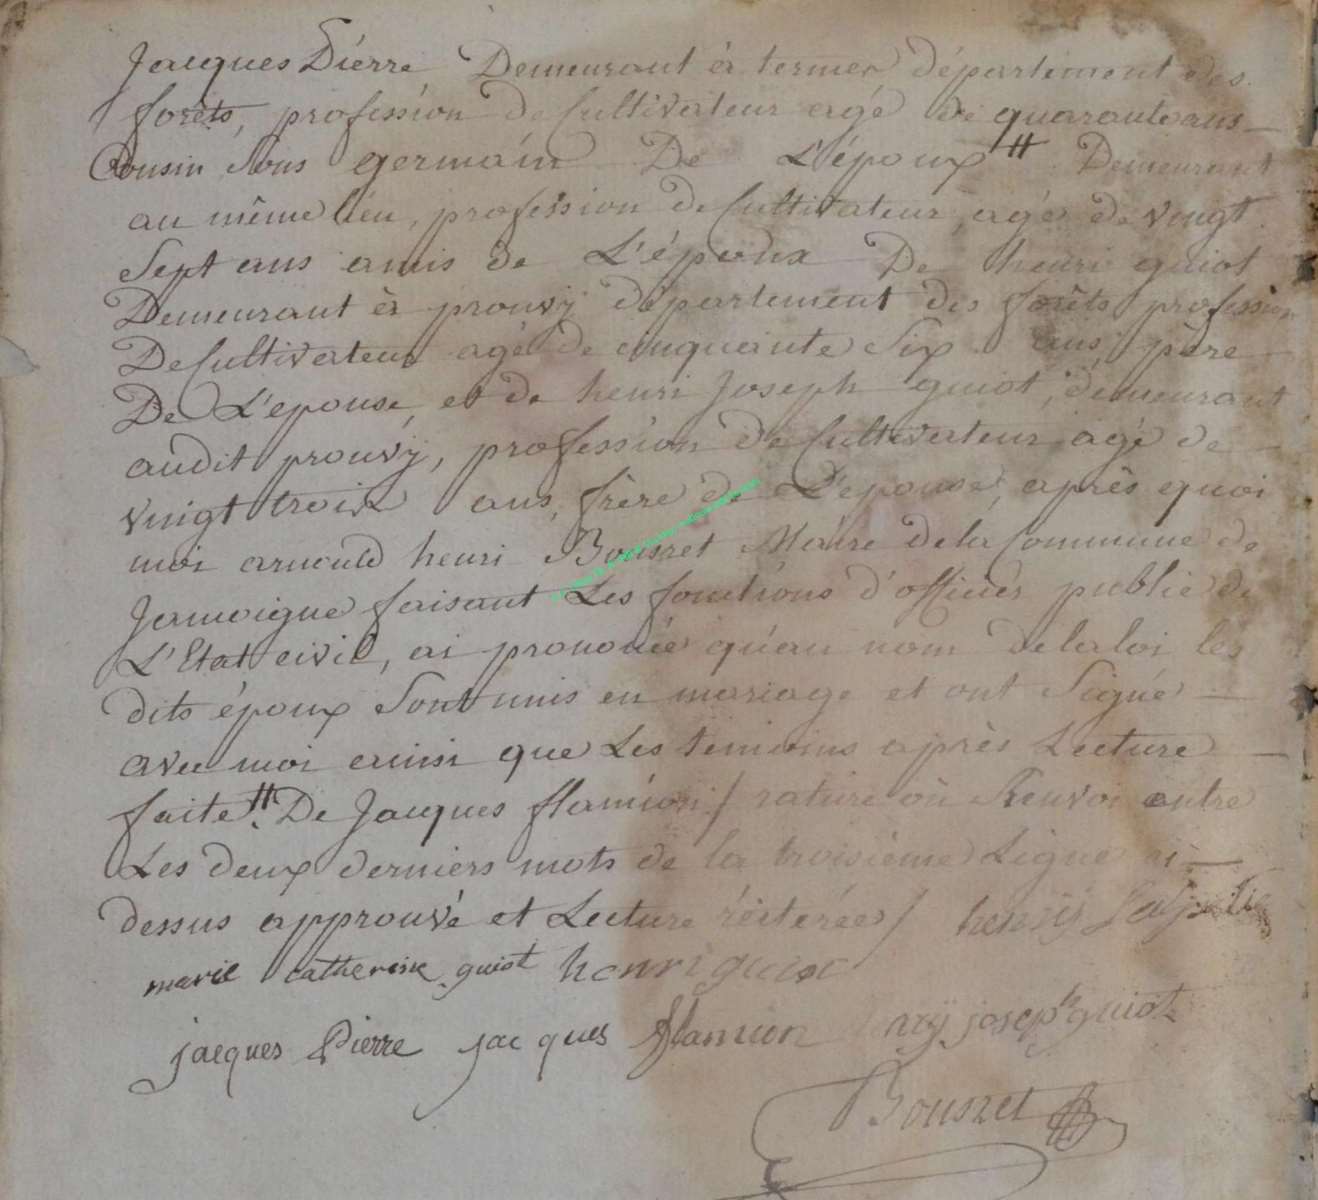 Jacques Piérre Demeurant à termes département des
forêts, profession De Cultivateur agé de quarante ans
Cousin Sous germain De L'époux # Demeurant
au même lieu, profession de Cultivateur, agé de vingt
Sept ans amis de L'époux De henri guiot
Demeurant à prouvÿ département des forêts profession
De Cultivateur agé de cinquante Six ans, père
De L'epouse, et de henri Joseph guiot, demeurant
audit prouvÿ, profession de Cultivateur agé de
vingt trois ans, frère de L'epouse, après quoi
moi arnould henri Bousret Maire de la Commune de
Jamoigne faisant Les fonctions d'officier public de
L'Etat civil, ai prononcé qu'au nom de la loi les
dits époux Sont unis en mariage et ont Signé
avec moi ainsi que Les temoins après Lecture
faite #. De Jacques flamion / rature où Renvoi entre
Les deux derniers mots de la troisième Ligne ci
dessus approuvé et Lecture réiterée /
marie catherine guiot henri guiot
jacques Pierre jacques flamion joseph guiot
Bousret